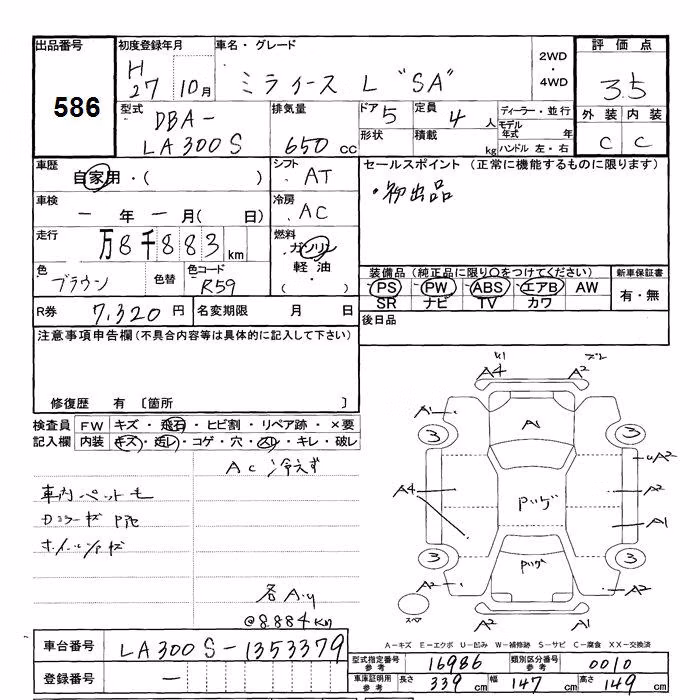 出品番号 初度登録年月 車名・グレード 2WD・4WD 評価点
586 H27 10月 ミライース L "SA" 3.5
型式 排気量 ドア 5 定員 4人 ディーラー・並行 外装 内装
DBA-LA300S 650cc 形状 積載 kg モデル年式 年 C C
ハンドル 左・右
車歴 自家用・( ) シフト AT セールスポイント (正常に機能するものに限ります)
車検 ー年ー月( 日) 冷房 AC ・初出品
走行 万8千883km 燃料 ガソリン
軽油・( )
色 ブラウン 色替 色コード R59 装備品 (純正品に限り○をつけてください) 新車保証書
PS PW ABS エアB AW 有・無
SR ナビ TV カワ
R券 7,320円 名変期限 月 日 後日品
注意事項申告欄(不具合内容等は具体的に記入して下さい)
修復歴 有 〔箇所 〕
検査員 FW キズ・飛石・ヒビ割・リペア跡・×要
記入欄 内装 キズ・汚レ・コゲ・穴・スレ・キレ・破レ
AC 冷えず
車内ペット毛
ホイールキズ
@8.884km
A4 A2
A1 A1
3 3
A2
A4 Pッゲ A2
A1
3 3
Pッゲ
A2 A2
スペア A2 A1
A-キズ E-エクボ U-凹み W-補修跡 S-サビ C-腐食 XX-交換済
車台番号 LA300S-1353379
型式指定番号 参考 16986 類別区分番号 参考 0010
登録番号 ー
車庫証明用 参考 長さ 339cm 幅 147cm 高さ 149cm